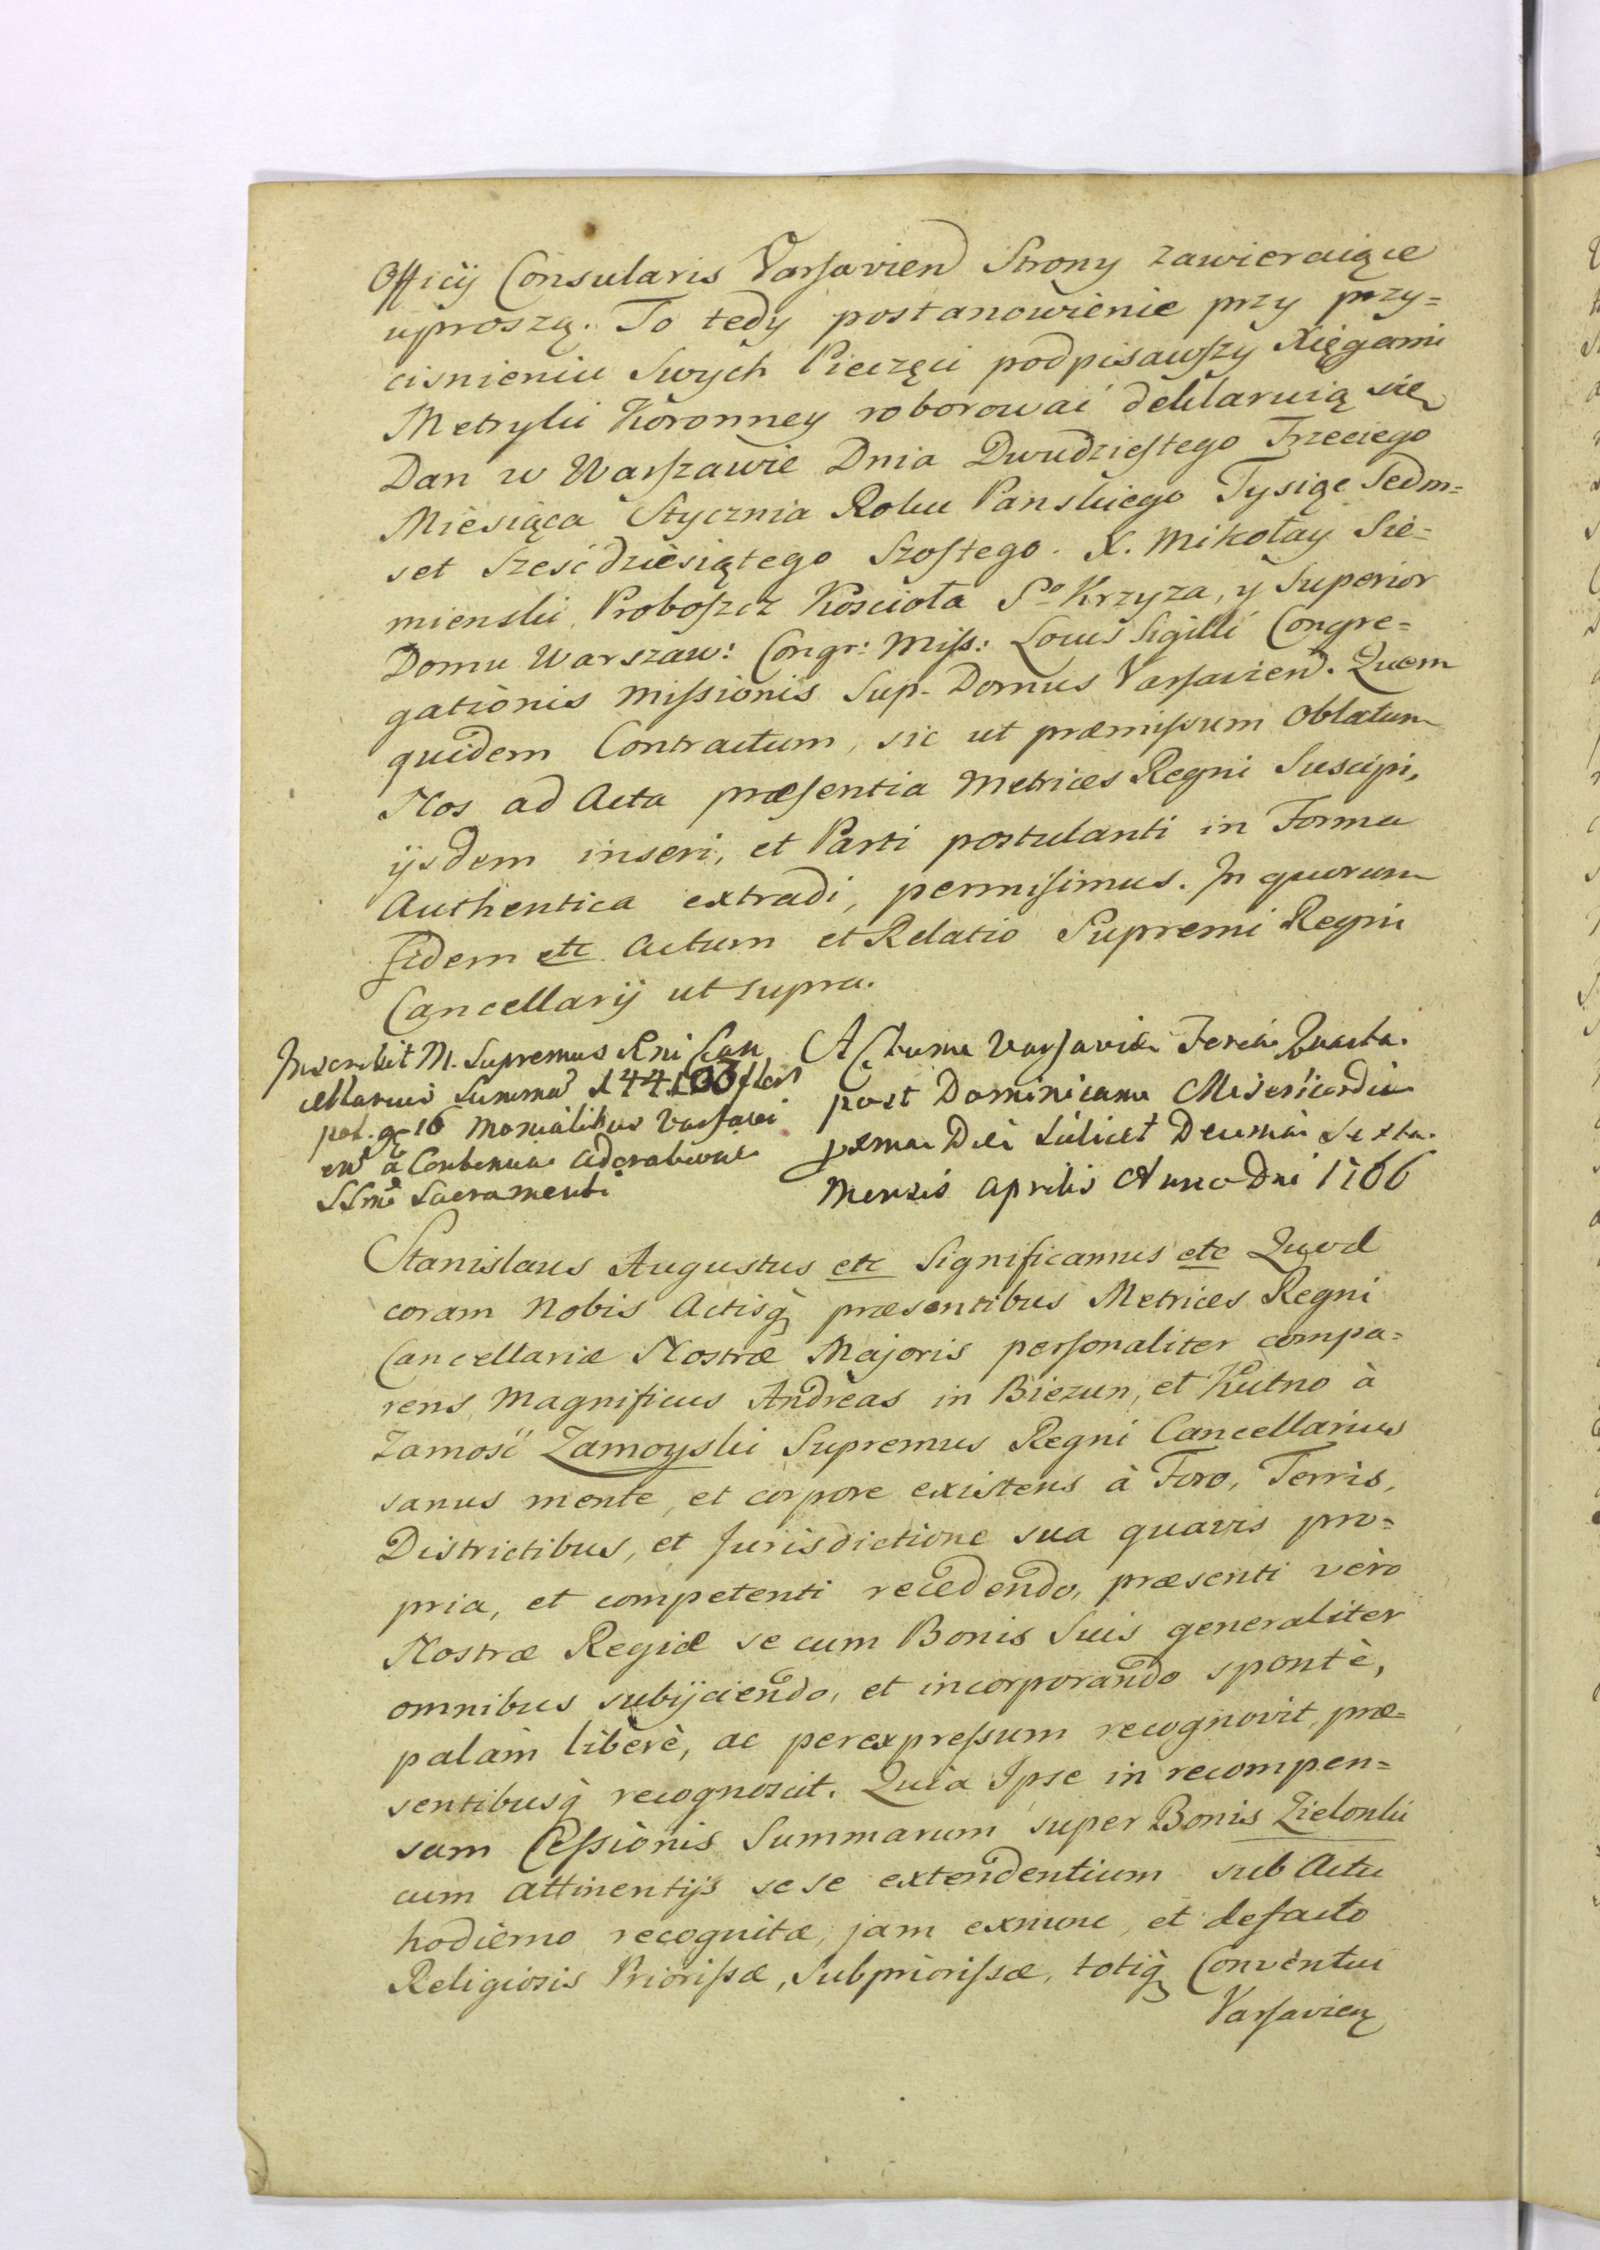 Officij Consularis Varsavien Strony zawieraiące
uproszą. To tedy postanowienie przy przy=
cisnieniu Swych Pieczęci podpisawszy Xięgami
Metryki Koronney roborować deklaruią się
Dan w Warszawie Dnia Dwudziestego Trzeciego
Miesiąca Stycznia Roku Panskiego Tysiąc Sedm=
set Sześćdziesiątego Szostego. X. Mikołay Sie=
mienski Proboszcz Kościoła So Krzyza, y Superior
Domu Warszaw: Congr: Miss: Locus Sigilli Congre=
gationis Missionis Sup. Domus Varsavien. Quem
quidem Contractum, sic ut præmissum Oblatum
Nos ad Acta præsentia Metrices Regni Suscipi,
ijsdem inseri, et Parti postulanti in Forma
Authentica extradi, permisimus. In quorum
fidem etc Actum et Relatio Supremi Regni
Cancellarij ut supra.
Inscribit M. Supremus Rni Can
cellarius Summā 144103 flor
pol. gr 16 Monialibus Varsavi
en à Continua Adoratione
SSmi Sacramenti
Actum Varsaviæ Feria Quarta
post Dominicam Misericordia
proxima Die scilicet Decima Sexta
Mensis Aprilis Anno Dni 1766
Stanislaus Augustus etc Significamus etc Quod
coram Nobis Actisq præsentibus Metrices Regni
Cancellariæ Nostræ Majoris personaliter compa=
rens Magnificus Andreas in Biezun, et Kutno à
Zamość Zamoyski Supremus Regni Cancellarius
sanus mente, et corpore existens à Foro, Terris,
Districtibus, et Jurisdictione sua quavis pro=
pria, et competenti recedendo, præsenti vèro
Nostræ Regiæ se cum Bonis Suis generaliter
omnibus subijciendo, et incorporando spontè,
palàm liberè, ac per expressum recognovit, præ=
sentibusq recognoscit. Quia Ipse in recompen=
sam Cessionis Summarum super Bonis Zielonki
cum attinentijs sese extendentium sub Actu
hodierno recognitæ, jam exnunc, et defacto
Religiosis Priorissæ, Subpriorissæ, totiq Conventui
Varsavien